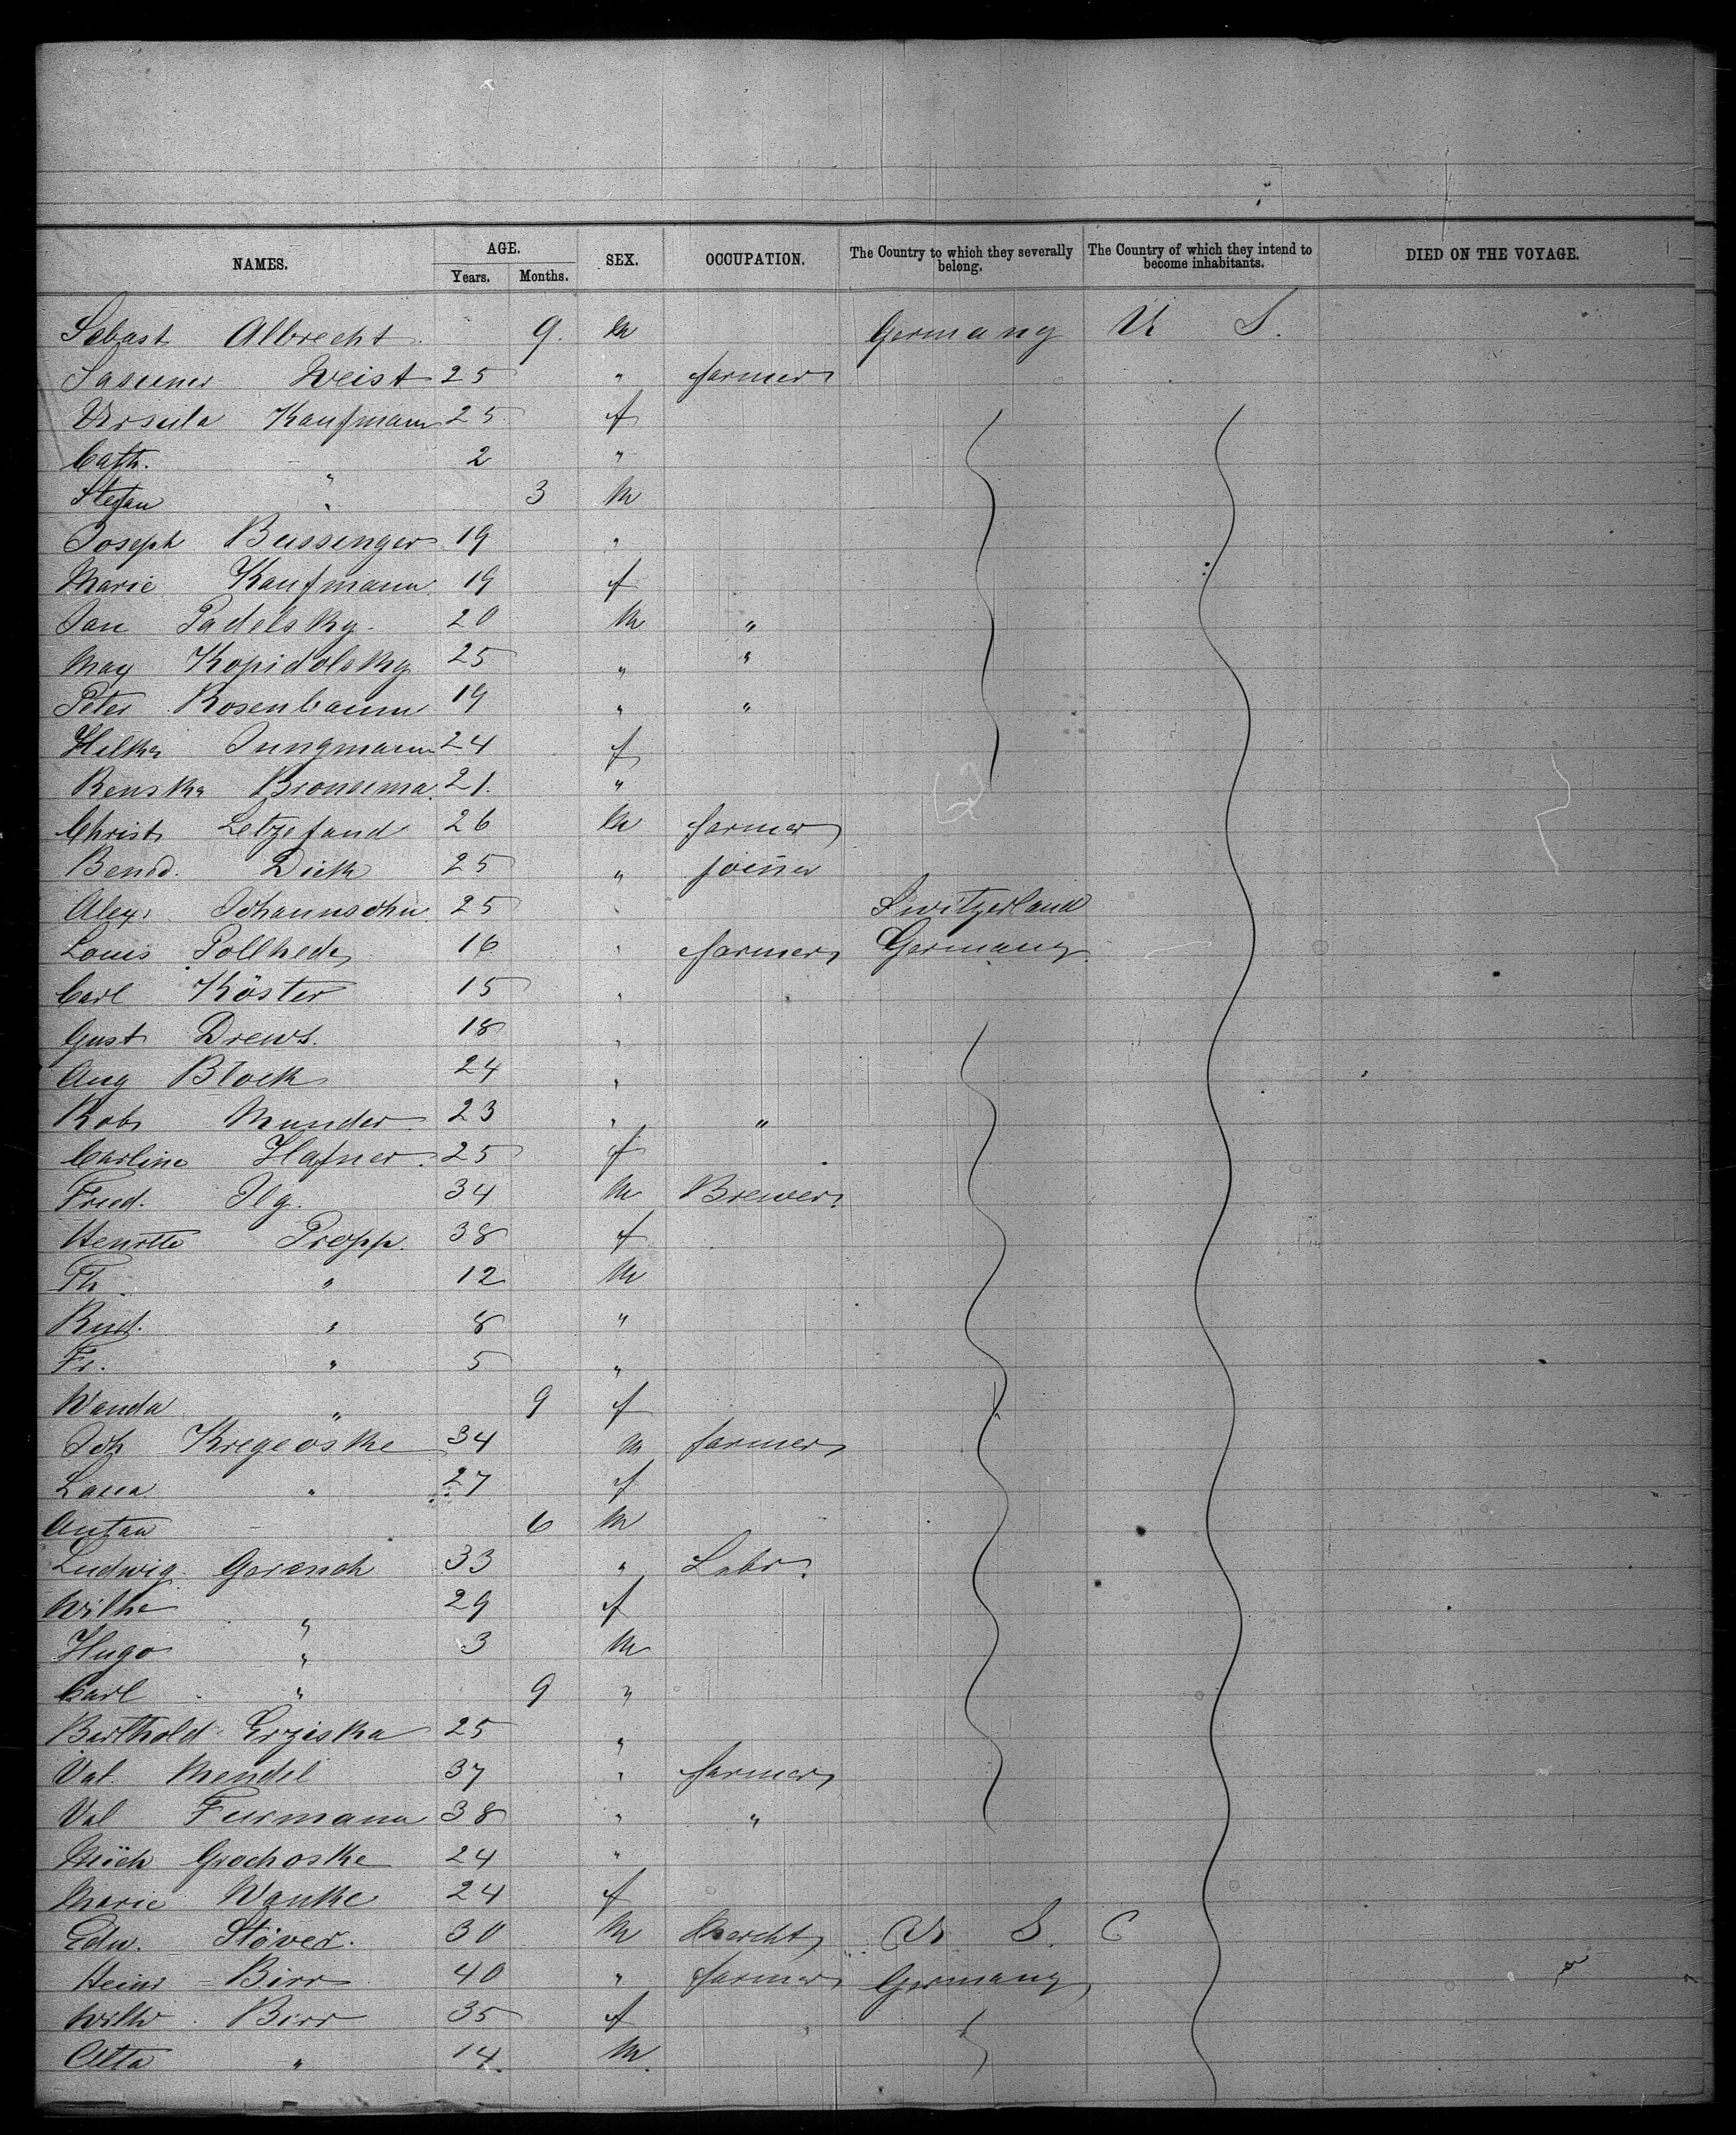 NAMES. AGE. SEX. OCCUPATION. The Country to which they severally belong. The Country of which they intend to become inhabitants. DIED ON THE VOYAGE.
Years. Months.
Sebast Albrecht 9 m Germany U S.
Weist 25 " farmer
Ursula Kaufmann 25 f
Cath. " 2 "
Stefan " 3 m
Joseph Bussinger 19 "
Marie Kaufmann 19 f
Jan Padelsky 20 m "
Max Kopidolsky 25 " "
Peter Rosenbaum 19 " "
Hilka Jungmann 24 f
Renska Bronsema 21 "
Christ Letzefand 26 m farmer
Bend. Dick 25 " joiner
Alex Johannsohn 25 " Switzerland
Louis Pollhede 16 " farmer Germany
Carl Köster 15 "
Gust Drews. 18 "
Aug Block 24 "
Rob Munder 23 " "
Carline Hafner 25 f
Fried. Ilg. 34 m Brewer
Henrtte Propp. 38 f
Th. " 12 m
Rud. " 8 "
Fr. " 5 "
Wanda " 9 f
Joh Kregeoske 34 m farmer
Laura " 27 f
Anton 6 m
Ludwig Gersnch 33 " Labr.
Wilhe " 29 f
Hugo " 3 m
Carl " 9 "
Berthold Erziska 25 "
Val. Mendel 37 " farmer
Val Furmann 38 " "
Mich Grochoske 24 "
Marie Wanke 24 f
Edw. Stöver. 30 m Mercht U S. C
Heinr Birr 40 " farmer Germany
Wilhe Birr 35 f
Otto " 14. m.